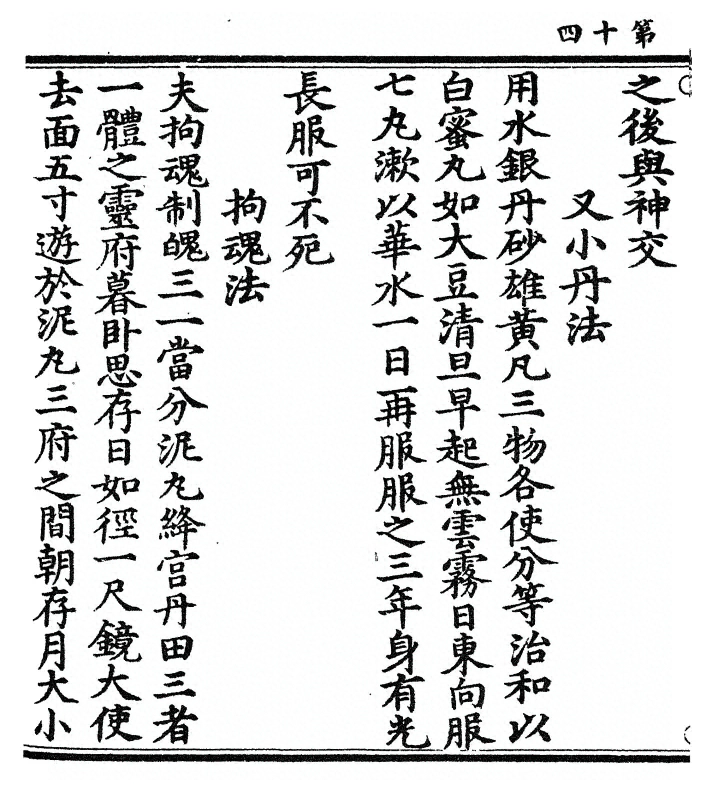 第十四
之後與神交
又小丹法
用水銀丹砂雄黃凡三物各使分等治和以
白蜜丸如大豆清旦早起無雲霧日東向服
七丸漱以華水一日再服服之三年身有光
長服可不死
拘魂法
夫拘魂制魄三一當分泥丸絳宮丹田三者
一體之靈府暮卧思存日如徑一尺鏡大使
去面五寸遊於泥丸三府之間朝存月大小